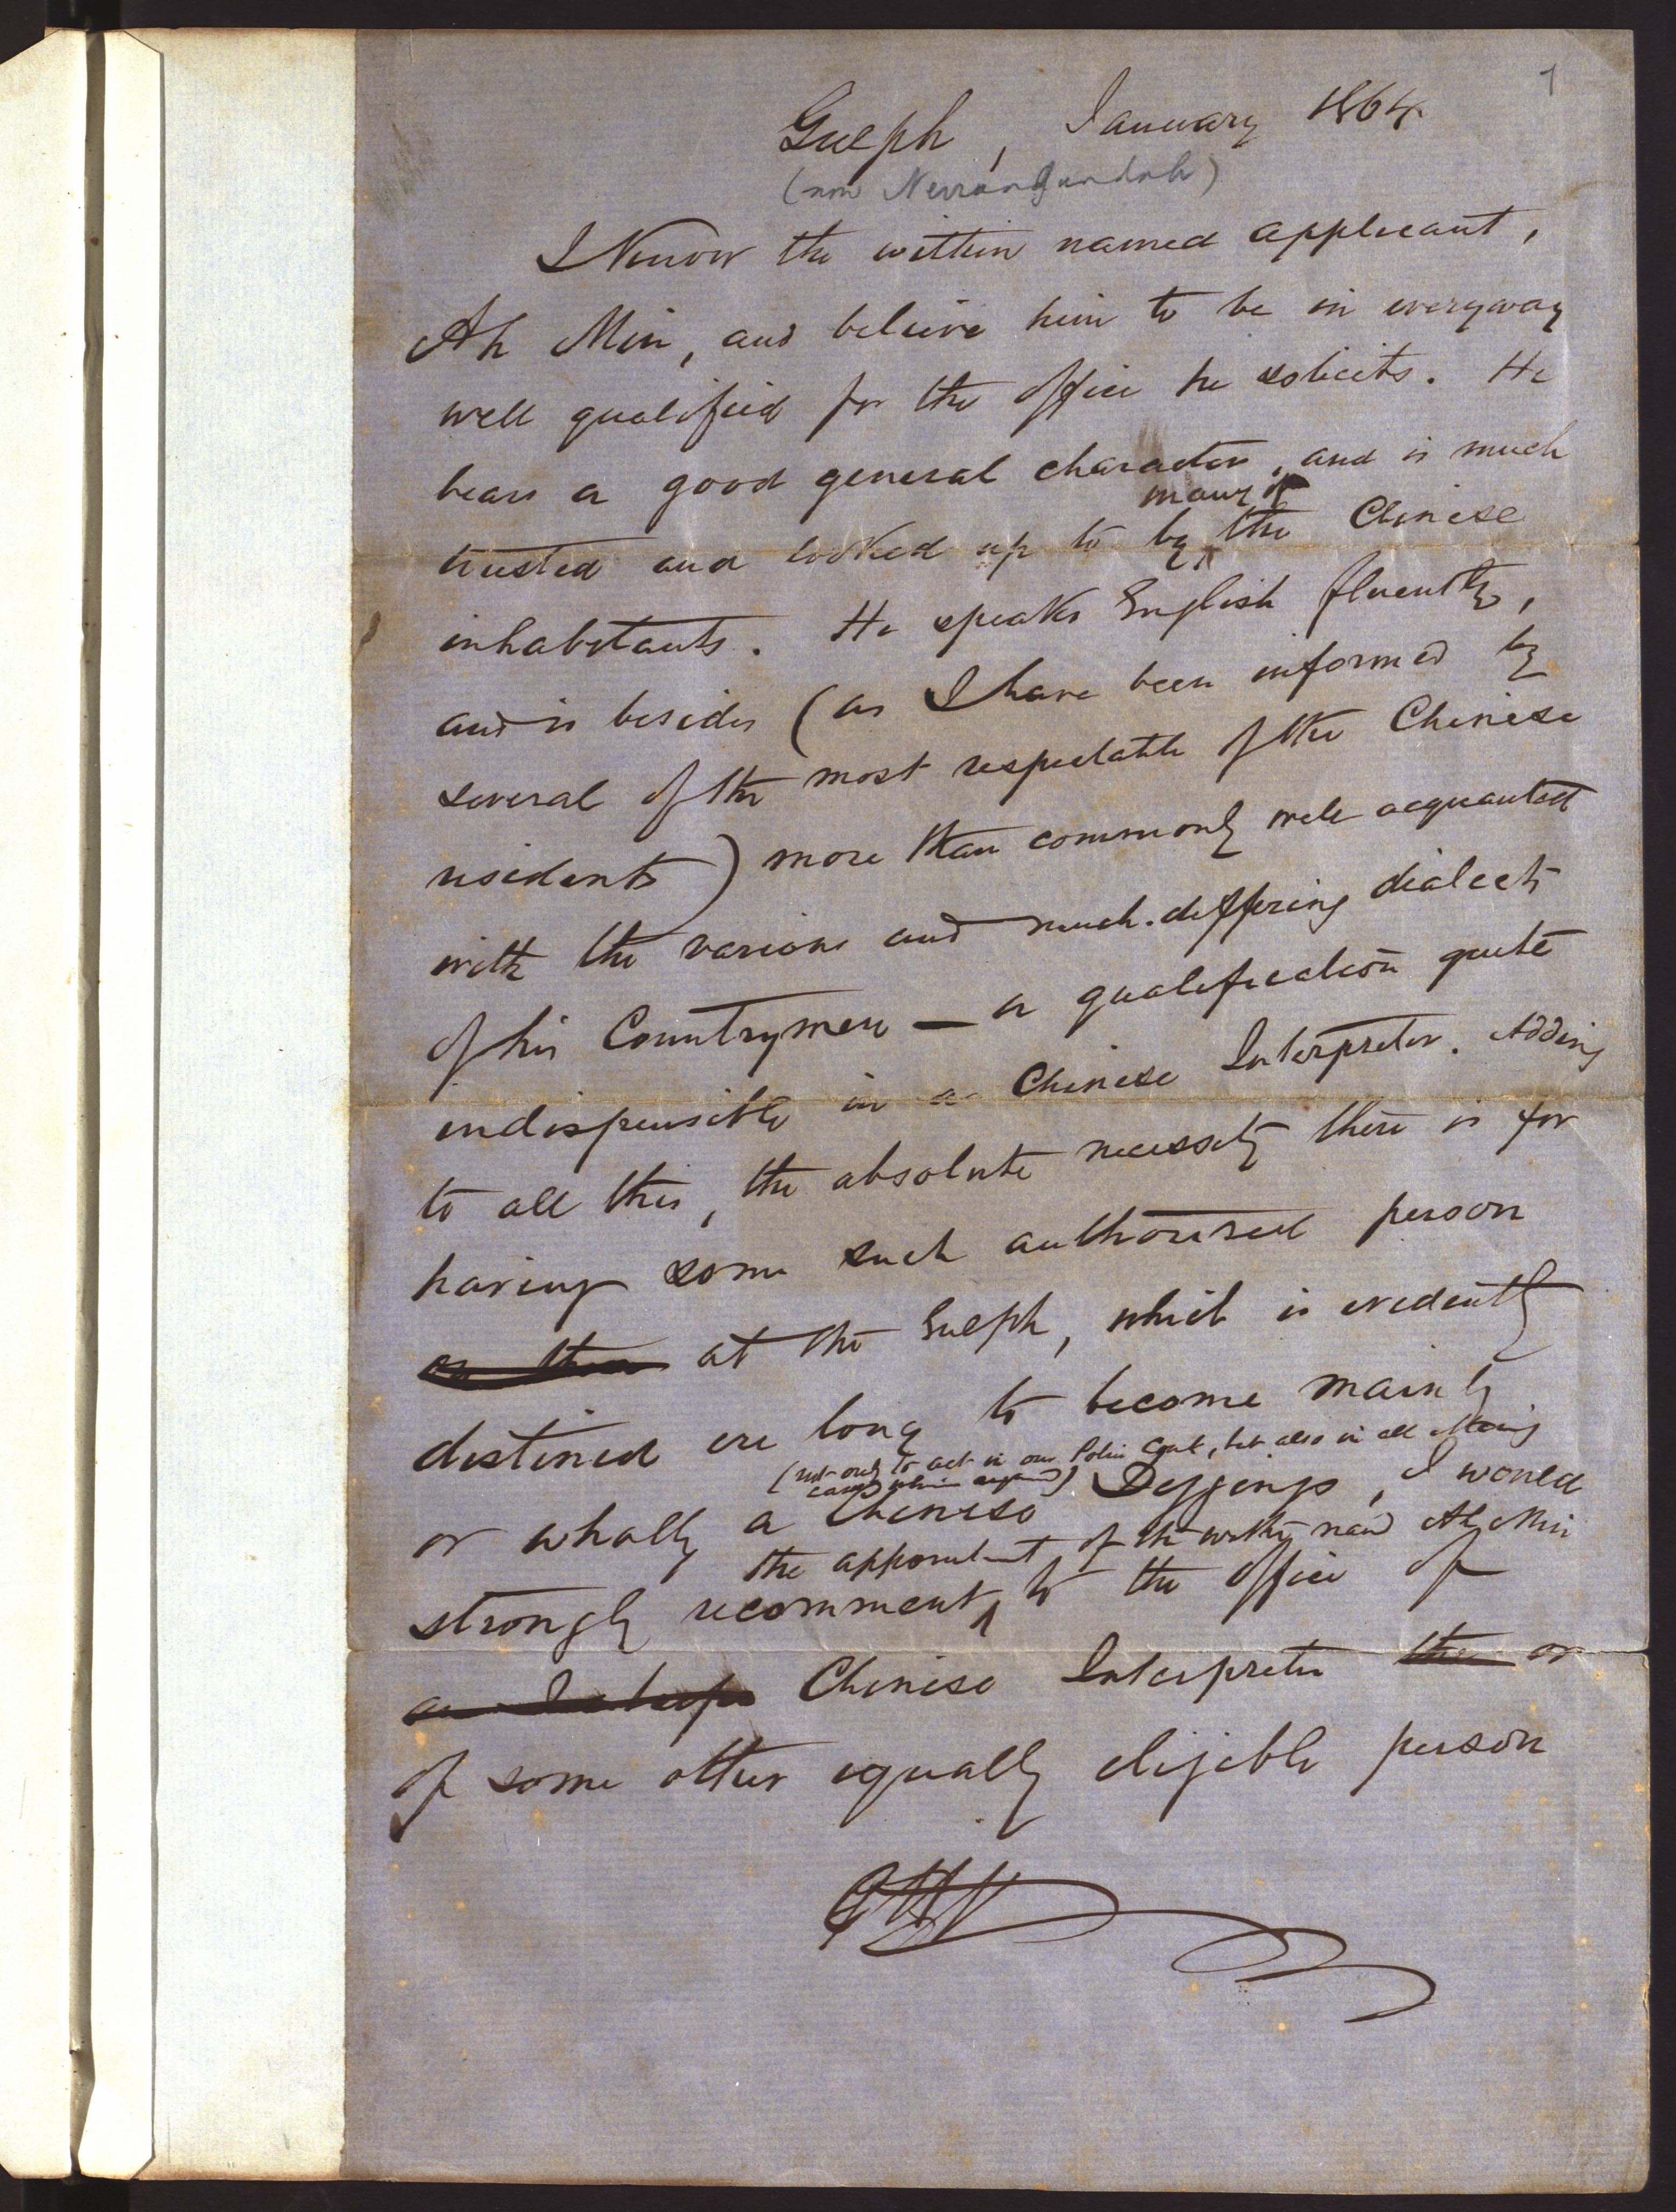 7
Gulph, January 1864.
(now Nerrangundah)
I Know the within named applicant,
Ah Min, and believe him to be in everyway
well qualified for the office he solicits. He
bears a good general character, and is much
many of
trusted and looked up to by the Chinese
inhabitants. He speaks English fluently,
and is besides (as I have been informed by
several of the most respectable of the Chinese
residents) more than commonly well acquainted
with the various and much-differing dialects
of his Countrymen — a qualification quite
indispensible in a Chinese Interpreter. Adding
to all this, the absolute necessity there is for
having some such authorised person
on the at the Gulph, which is evidently
destined ere long to become mainly
(not only to act in our Police Court, but also in all Mining
cases when required)
or wholly a Chinese Diggings, I would
the appointment of the within nam'd Ah Min
strongly recomment to the office of
Chinese Interpreter the or
of some other equally eligible person